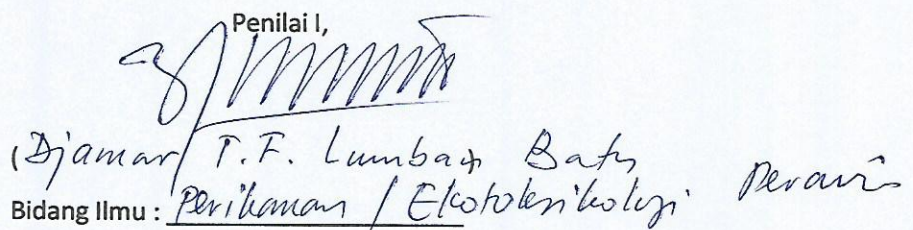 Penilai I,
(Djamar T.F. Lumban Batu
Bidang Ilmu : Perikanan / Ekotoksikologi Perairan